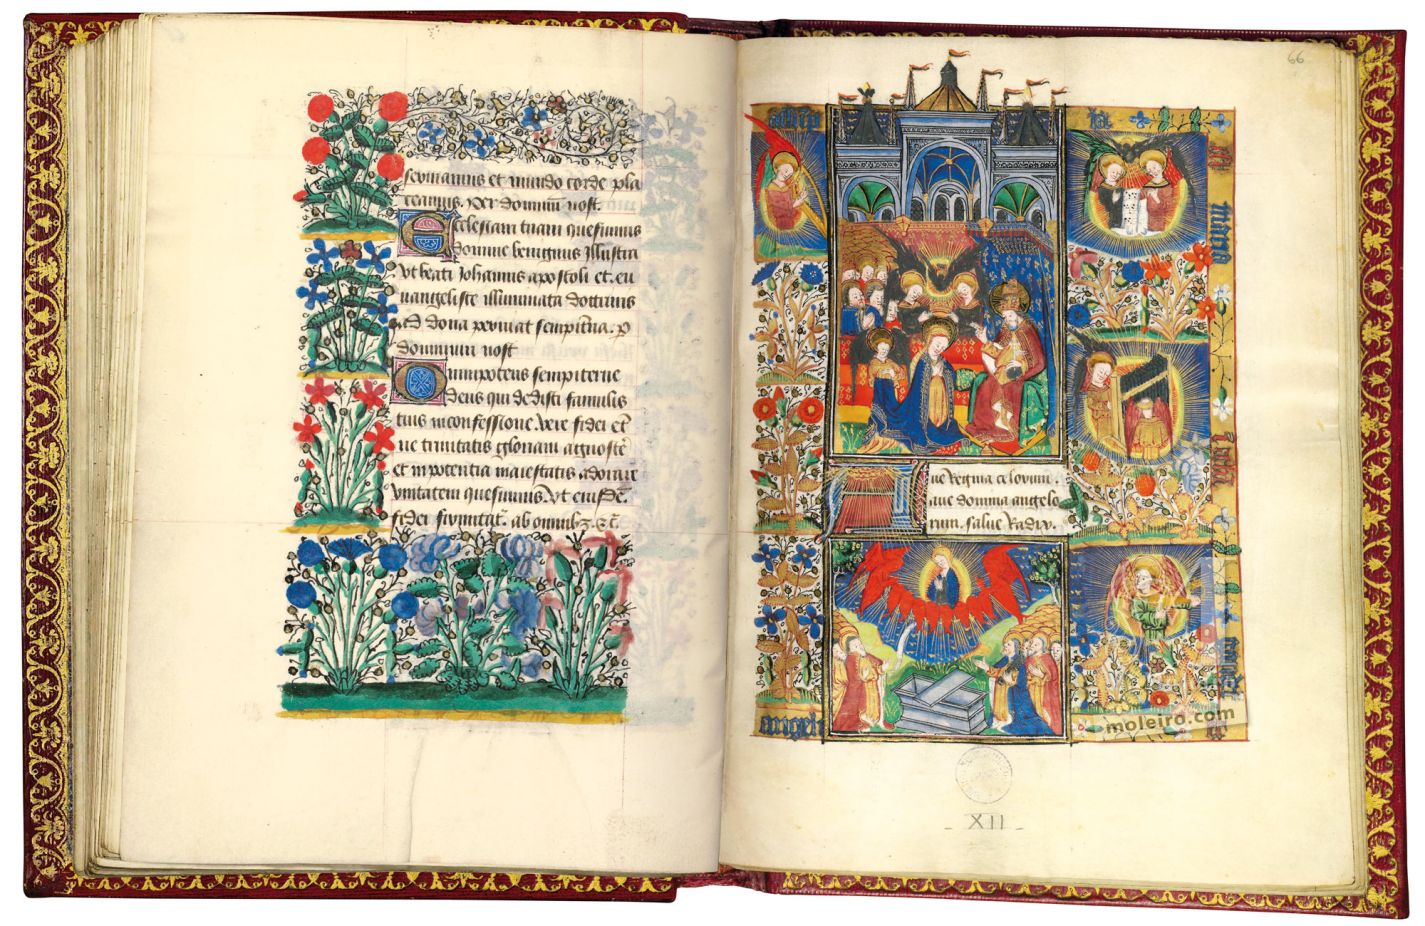 seruiamus et mundo corde pla
ceamus. Per dominum nost.
Ecclesiam tuam quesumus
domine benignus Illustra
Vt beati Johannis apostoli et eu
uangeliste illuminata doctrinis
ad dona perueniat sempiterna. p
dominum nost
Omnipotens sempiterne
deus qui dedisti famulis
tuis in confessione Vere fidei et
ne trinitatis gloriam agnoscere
et in potentia maiestatis adorare
vnitatem quesumus Vt eiusdem
fidei firmitate ab omnibus
66
Aue Regina celorum.
aue domina angelo
rum. salue Radix.
angeli
moleiro.com
- XII -